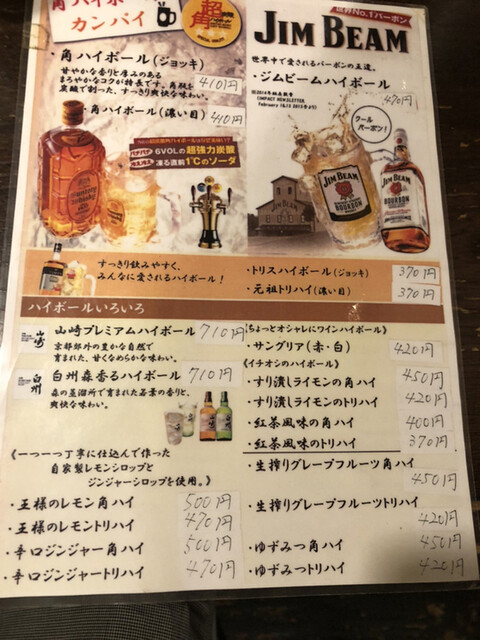 角ハイボール
カンパイ
超角
・角ハイボール(ジョッキ)
甘やかな香りと厚みのある
まろやかなコクが特長です。角瓶を
炭酸で割った、すっきり爽快な味わい。
410円
・角ハイボール(濃い目) 440円
6VOLの超強力炭酸
凍る直前1℃のソーダ
世界No.1バーボン
JIM BEAM
世界中で愛されるバーボンの王道。
・ジムビームハイボール
470円
クール
バーボン!
JIM BEAM
BOURBON
JIM BEAM
JIM BEAM
BOURBON
すっきり飲みやすく、
みんなに愛されるハイボール!
・トリスハイボール(ジョッキ) 370円
・元祖トリハイ(濃い目) 370円
ハイボールいろいろ
山崎
山崎プレミアムハイボール 710円
京都郊外の豊かな自然で
育まれた、甘くなめらかな味わい。
白州
白州森香るハイボール 710円
森の蒸溜所で育まれた若葉の香りと、
爽快な味わい。
《一つ一つ丁寧に仕込んで作った
自家製レモンシロップと
ジンジャーシロップを使用。》
・王様のレモン角ハイ 500円
・王様のレモントリハイ 470円
・辛口ジンジャー角ハイ 500円
・辛口ジンジャートリハイ 470円
《ちょっとオシャレにワインハイボール》
・サングリア(赤・白) 420円
《イチオシのハイボール》
・すり潰しライモンの角ハイ 450円
・すり潰しライモンのトリハイ 420円
・紅茶風味の角ハイ 400円
・紅茶風味のトリハイ 370円
・生搾りグレープフルーツ角ハイ
450円
・生搾りグレープフルーツトリハイ
420円
・ゆずみつ角ハイ 450円
・ゆずみつトリハイ 420円